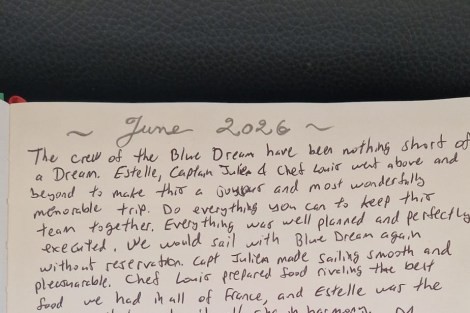 ~ June 2026 ~
The crew of the Blue Dream have been nothing short of
a Dream. Estelle, Captain Julien & Chef Louis went above and
beyond to make this a joyous and most wonderfully
memorable trip. Do everything you can to keep this
team together. Everything was well planned and perfectly
executed. We would sail with Blue Dream again
without reservation. Capt Julien made sailing smooth and
pleasurable. Chef Louis prepared food rivaling the best
food we had in all of France, and Estelle was the
harmony.